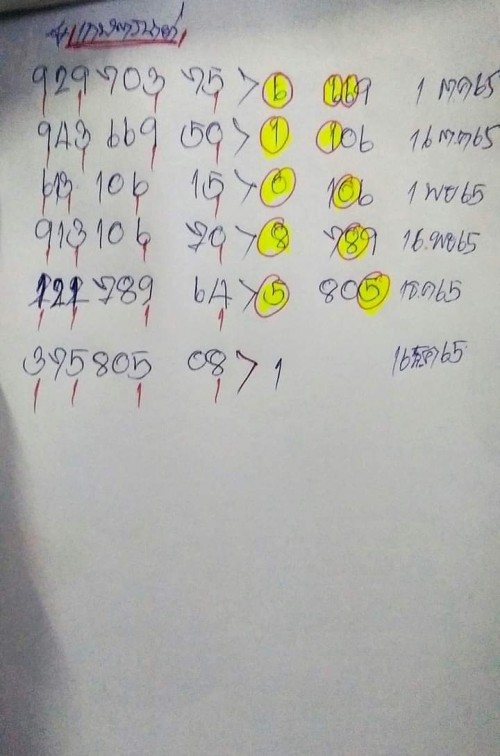 929 703 75 > 6 669 1 ตค65
943 669 50 > 1 106 16ตค65
613 106 15 > 0 106 1 พย65
913 106 70 > 8 789 16.พย65
121 789 64 > 5 805 1ธค65
375 805 08 > 1 16ธค65